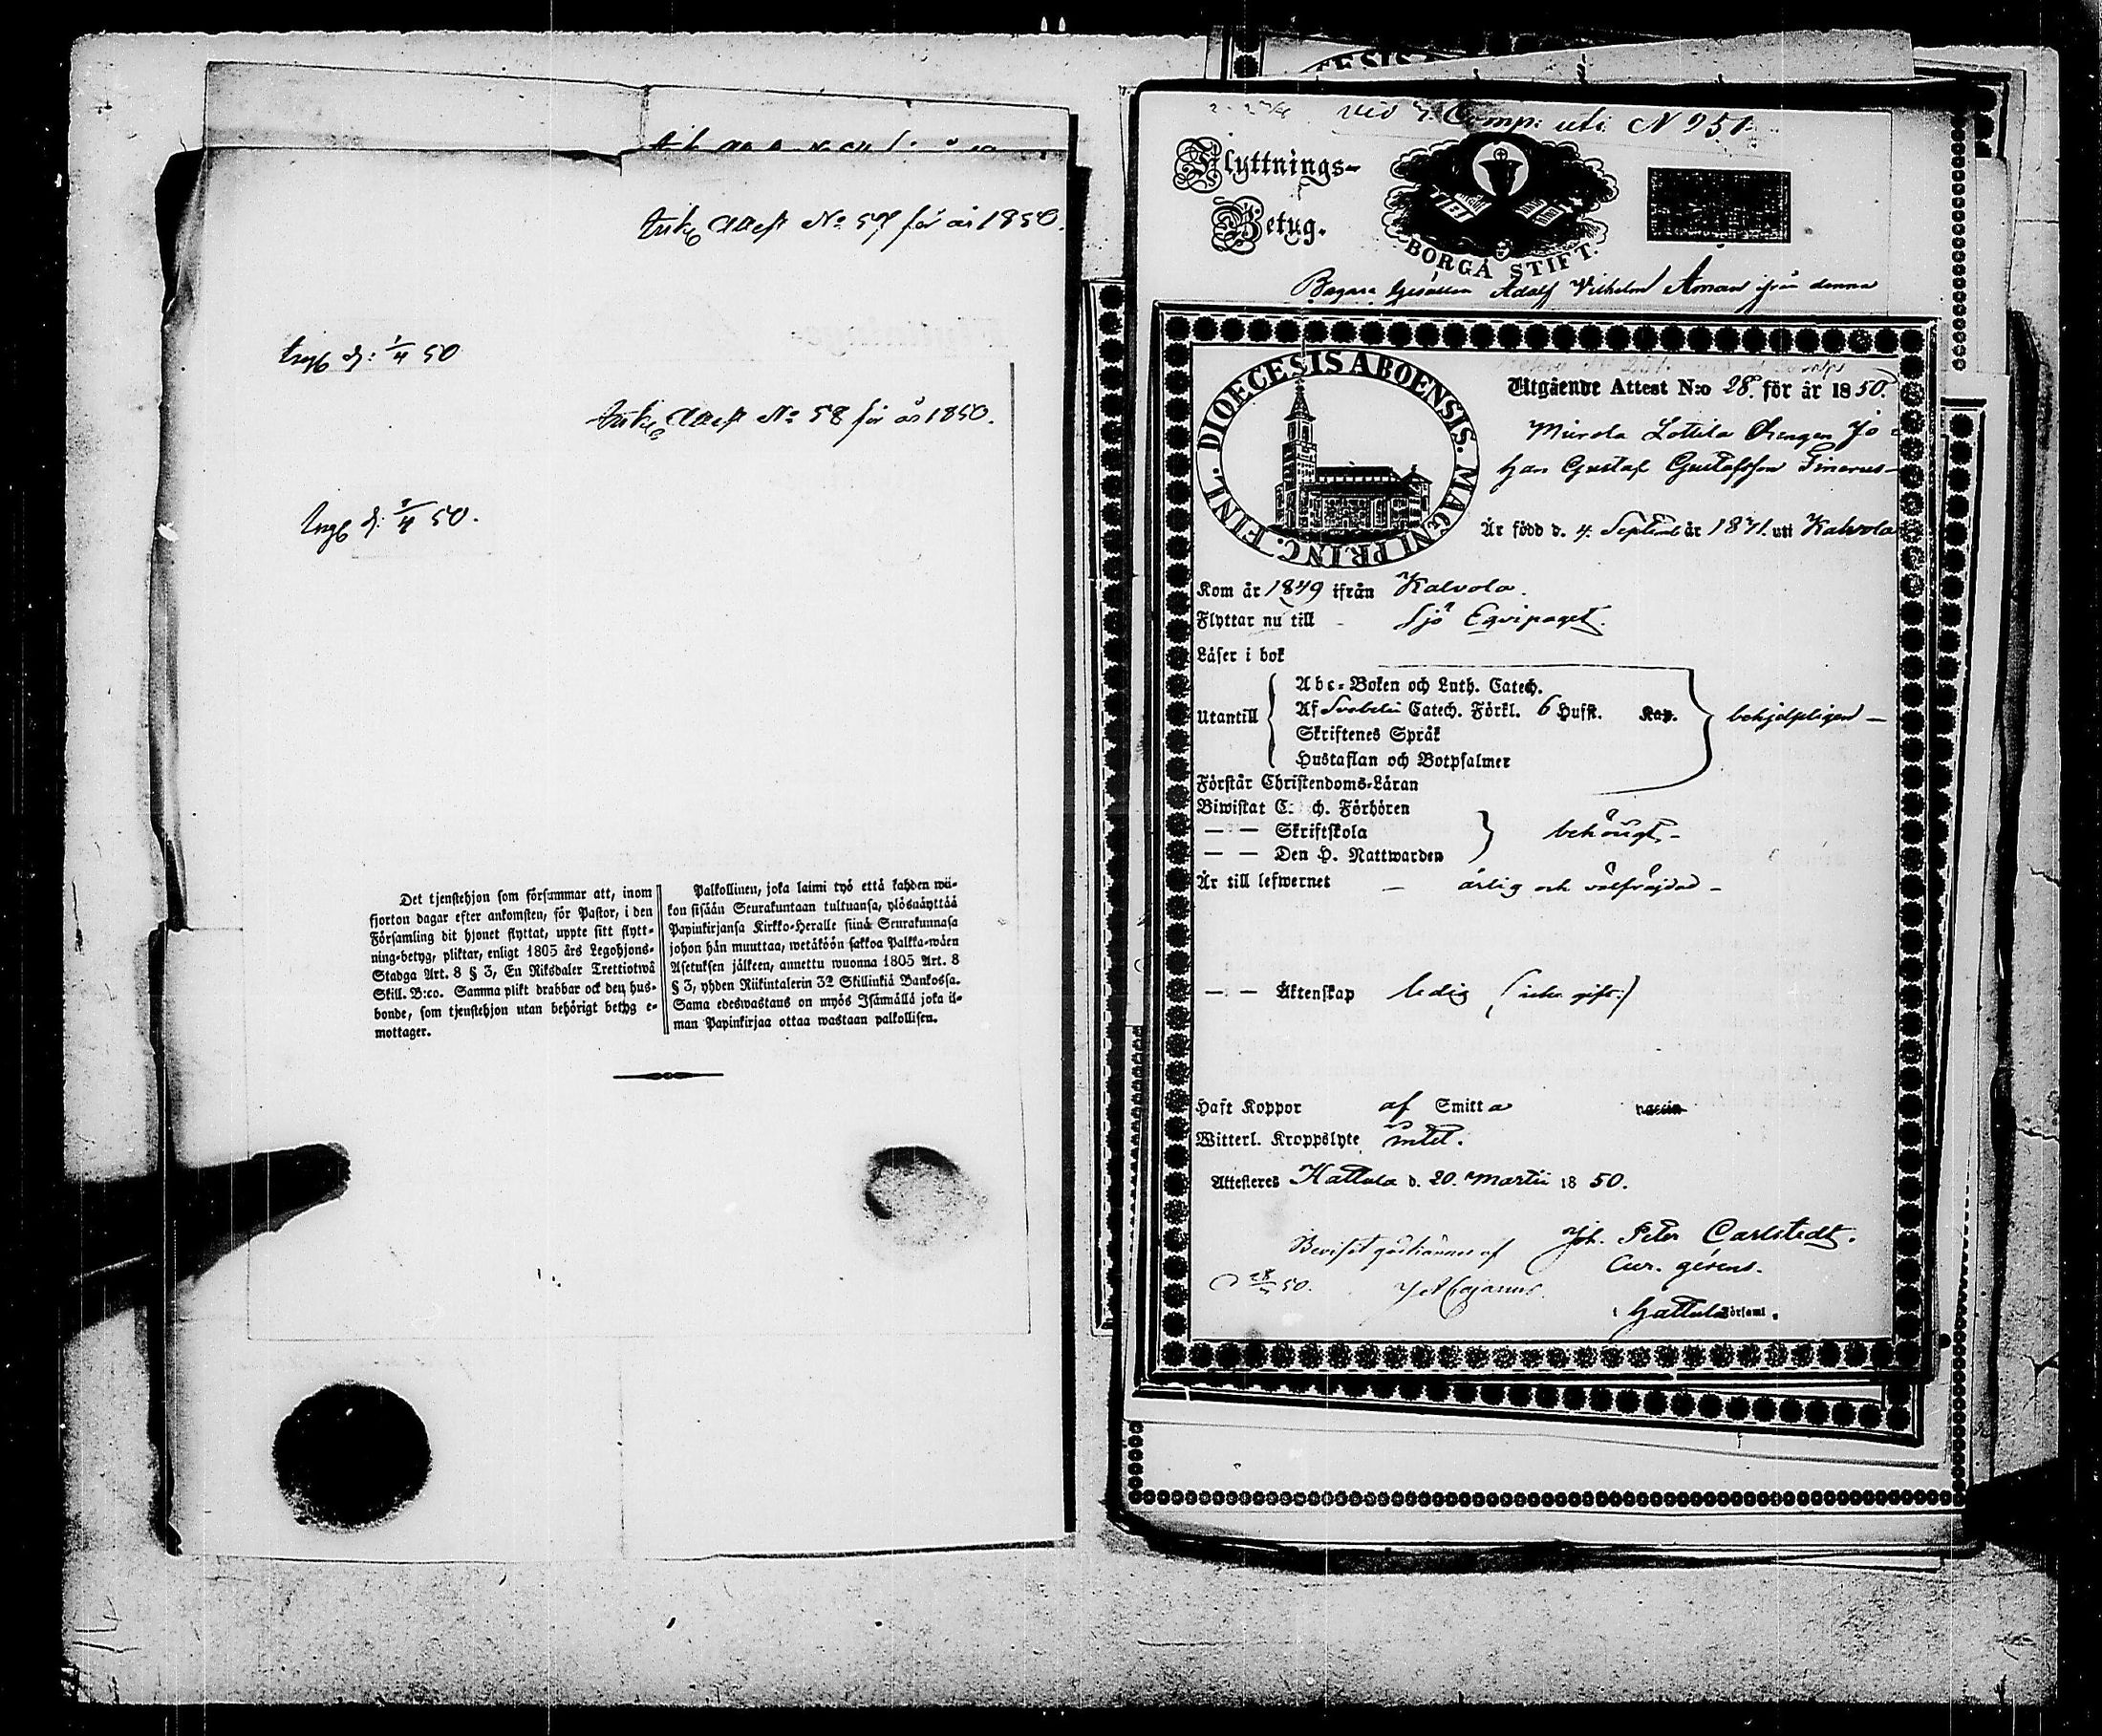 Ank. Attest No 57 för år 1850.
Ingb d: 1/4 50
Ank. Attest No 58 för år 1850.
Ingb d: 3/4 50.
Det tjenstehjon som försummar att, inom
fjorton dagar efter ankomsten, för Pastor, i den
Församling dit hjonet flyttat, uppte sitt flytt-
ning-betyg, pliktar, enligt 1805 års Legohjons-
Stadga Art. 8 § 3, En Riksdaler Trettiotwå
Skill. B:co. Samma plikt drabbar ock den hus-
bonde, som tjenstehjon utan behörigt betyg e-
mottager.
Palkollinen, joka laimi työ että kahden wii-
kon sisään Seurakuntaan tultuansa, ylösnäyttää
Papinkirjansa Kirkko-Heralle siinä Seurakunnasa
johon hän muuttaa, wetäköön sakkoa Palkka-wäen
Asetuksen jälkeen, annettu wuonna 1805 Art. 8
§ 3, yhden Riikintalerin 32 Skillinkiä Bankossa.
Sama edeswastaus on myös Isännällä joka il-
man Papinkirjaa ottaa wastaan palkollisen.
vid 7 Comp: uti N 251.
Flyttnings-
Betyg.
BORGÅ STIFT.
Bagare Gesällen Adolf Vilhelm Åman ifrån denna
DIOECESIS ABOENSIS. MAGNI PRINC. FINL.
Utgående Attest N:o 28. för år 1850.
Mierola Lottila Drengen Jo-
han Gustaf Gustafsson
Är född d. 4. Septemb år 1831. uti Kalvola
Kom år 1849 ifrån Kalvola.
Flyttar nu till Sjö Equipaget.
Läser i bok
Utantill
Abc-Boken och Luth. Catech.
Af Svebelii Catech. Förkl. 6 Hufst. Kap.
Skriftenes Språk
Hustaflan och Botpsalmer
behjelpligen —
Förstår Christendoms-Läran
Biwistat C ch. Förhören
— — Skriftskola
— — Den H. Nattwarden
behörigt. –
Är till lefwernet – ärlig och välfräjdad –
— — Äktenskap ledig (icke gift.)
Haft Koppor af Smitta vaccin
Witterl. Kroppslyte intet.
Attesteres Hattula d. 20. Martii 1850.
Joh. Peter Carlstedt.
Cur. gerens.
i Hattula Församl.
Beviset godkännes af